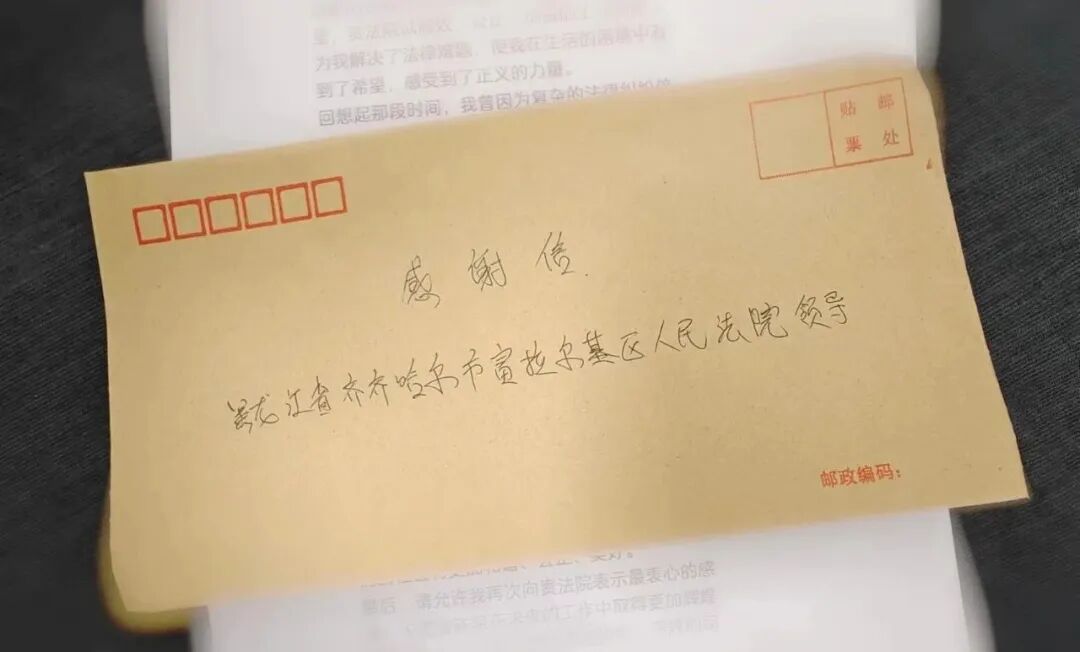 为我解决了法律难题，使我在生活的困境中看
到了希望，感受到了正义的力量。
回想起那段时间，我曾因为复杂的法律纠纷
贴 邮
票 处
感谢信
黑龙江省齐齐哈尔市富拉尔基区人民法院领导
邮政编码：
最后，请允许我再次向贵法院表示最衷心的感
在未来的工作中取得更加辉煌